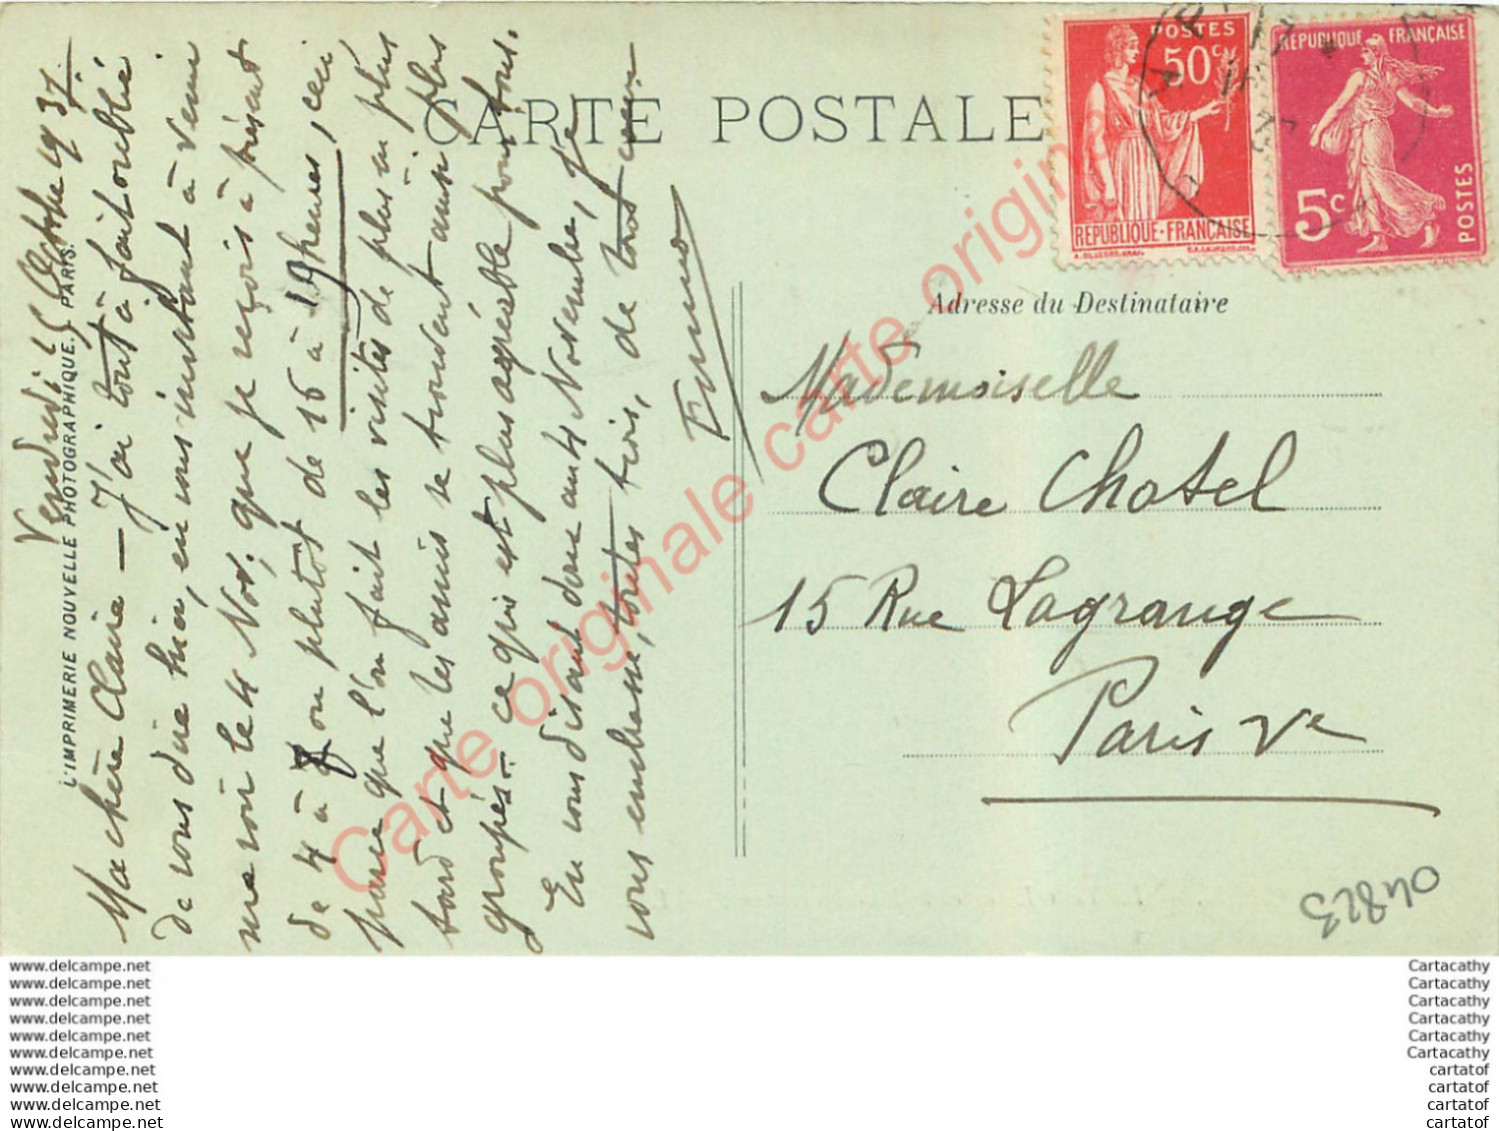 CARTE POSTALE
Vendredi 15 Octobre 1937.
Ma chère Claire — J'ai tout à fait oublié
de vous dire hier, en vous invitant à venir
me voir le 4 Nov. que je reçois à présent
de 4 à 7 ou plutôt de 16 à 19 heures, ceci
parce que l'on fait les visites de plus en plus
tard et que les amis se trouvent ainsi plus
groupés – ce qui est plus agréable pour tous.
En vous disant donc au 4 Novembre, je
vous embrasse, toutes trois, de tout cœur
L'IMPRIMERIE NOUVELLE PHOTOGRAPHIQUE. PARIS.
POSTES
50c
REPUBLIQUE·FRANÇAISE
REPUBLIQUE FRANÇAISE
5c
POSTES
Adresse du Destinataire
Mademoiselle
Claire Chotel
15 Rue Lagrange
Paris Ve
04823
Carte originale carte originale
www.delcampe.net
www.delcampe.net
www.delcampe.net
www.delcampe.net
www.delcampe.net
www.delcampe.net
www.delcampe.net
www.delcampe.net
www.delcampe.net
www.delcampe.net
Cartacathy
Cartacathy
Cartacathy
Cartacathy
Cartacathy
Cartacathy
cartatof
cartatof
cartatof
cartatof